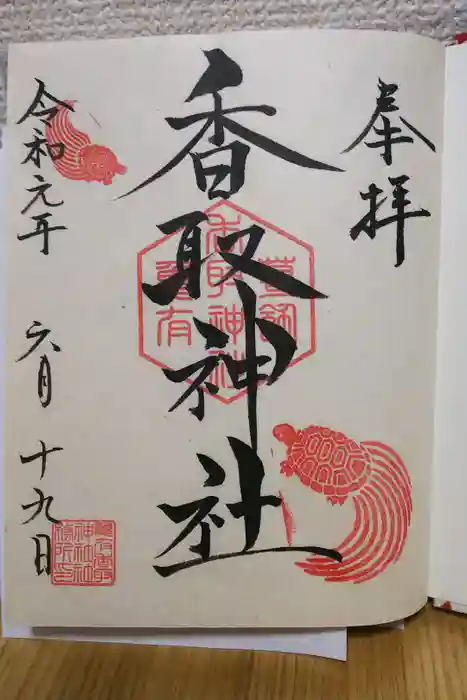 奉拝
香取神社
令和元年
六月十九日